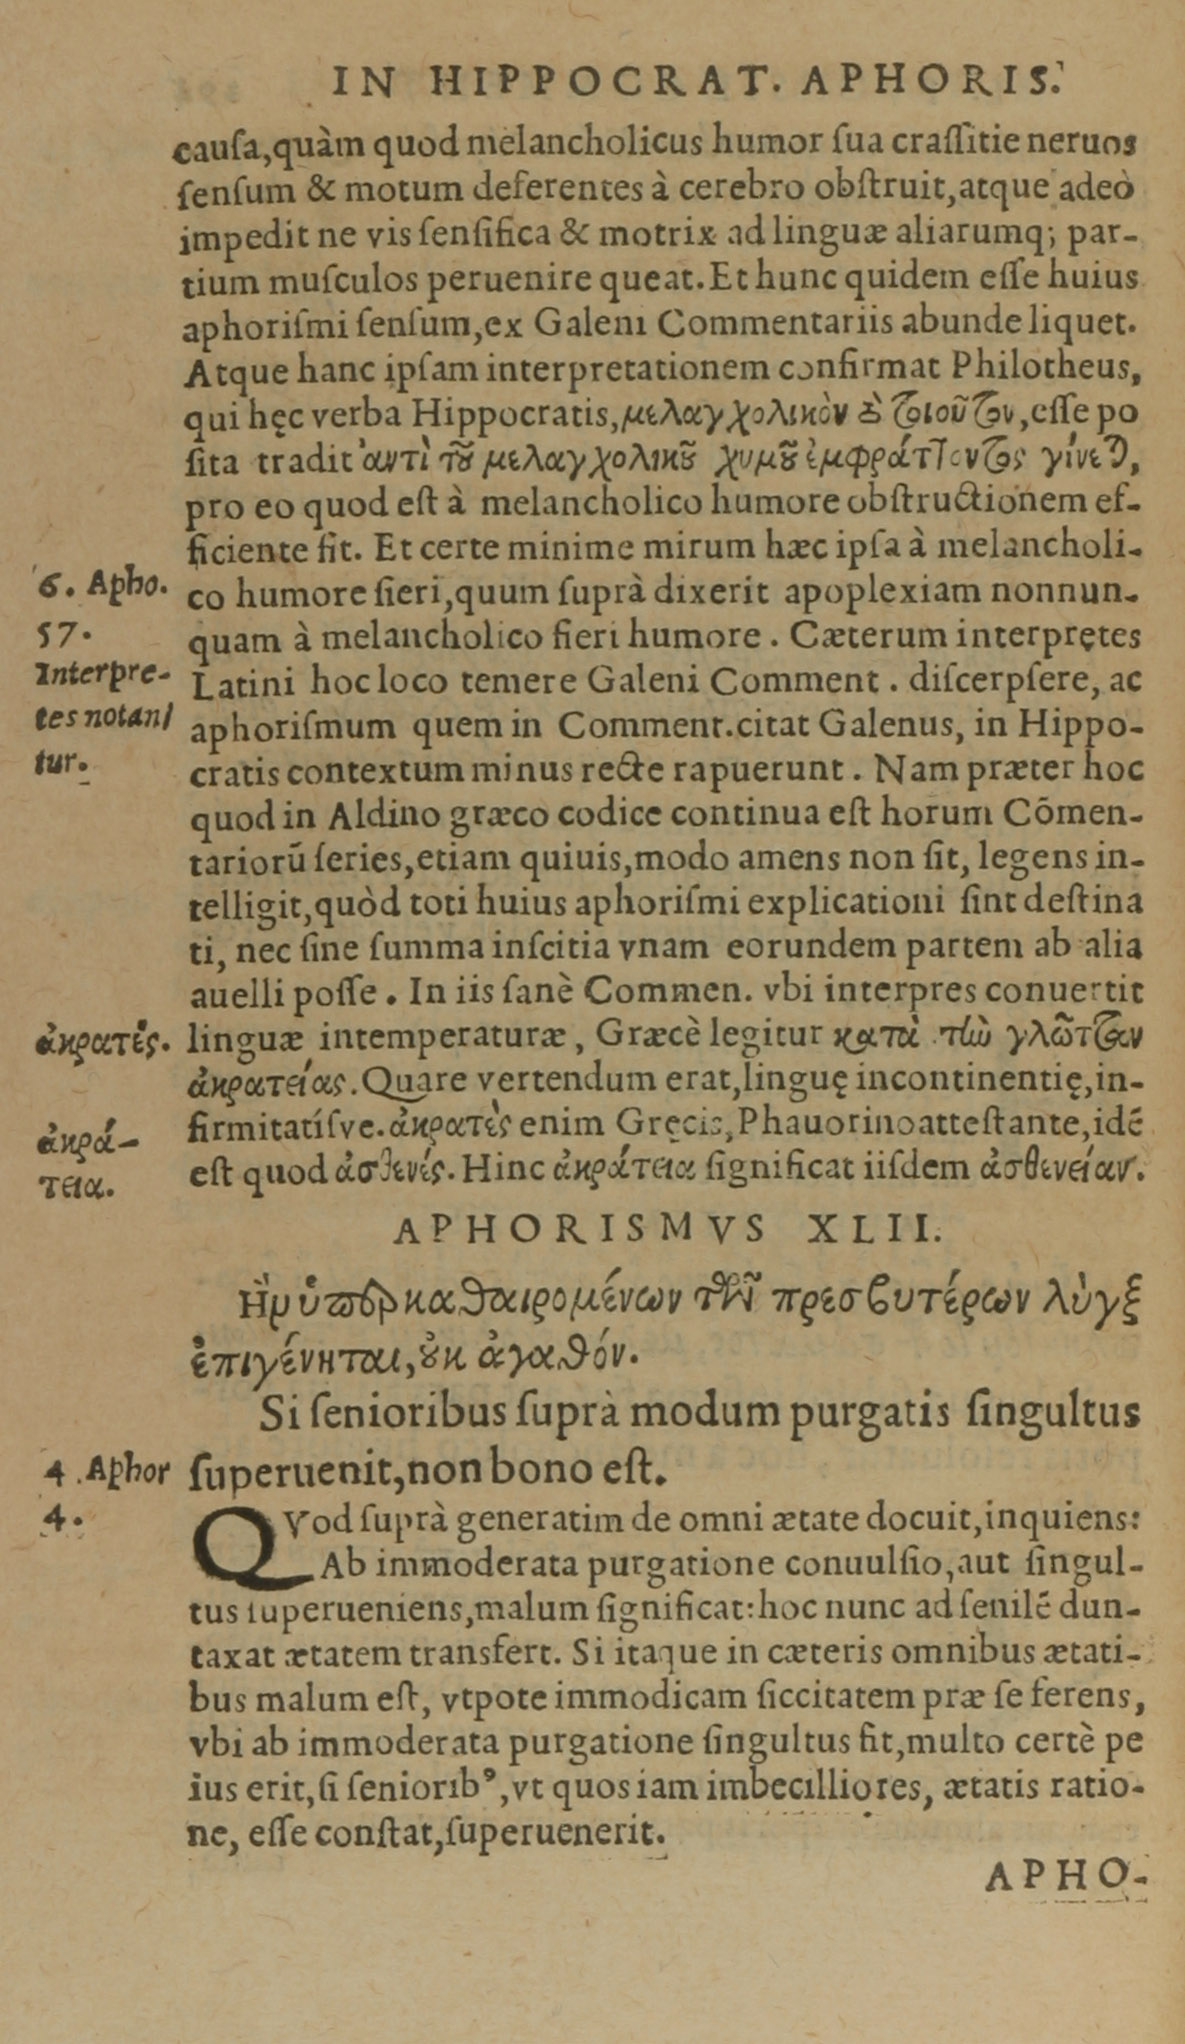 IN HIPPOCRAT. APHORIS.
cauſa,quàm quod melancholicus humor ſua craſſitie neruos
ſenſum & motum deferentes à cerebro obſtruit,atque adeò
impedit ne vis ſenſifica & motrix ad linguæ aliarumq; par-
tium muſculos peruenire queat. Et hunc quidem eſſe huius
aphoriſmi ſenſum,ex Galeni Commentariis abunde liquet.
Atque hanc ipſam interpretationem confirmat Philotheus,
qui hęc verba Hippocratis, μελαγχολικὸν τὸ τοιοῦτον, eſſe po
ſita tradit ἀντὶ τοῦ μελαγχολικοῦ χυμοῦ ἐμφράττοντος γίνεται,
pro eo quod eſt à melancholico humore obſtructionem ef-
ficiente fit. Et certe minime mirum hæc ipſa à melancholi-
6. Apho.
57.
co humore fieri,quum ſuprà dixerit apoplexiam nonnun-
quam à melancholico fieri humore. Cæterum interpretes
Interpre-
tes notan
tur.
Latini hoc loco temere Galeni Comment. diſcerpſere, ac
aphoriſmum quem in Comment.citat Galenus, in Hippo-
cratis contextum minus recte rapuerunt. Nam præter hoc
quod in Aldino græco codice continua eſt horum Cōmen-
tariorū ſeries,etiam quiuis,modo amens non ſit, legens in-
telligit,quòd toti huius aphoriſmi explicationi ſint deſtina
ti, nec ſine ſumma inſcitia vnam eorundem partem ab alia
auelli poſſe. In iis ſanè Commen. vbi interpres conuertit
ἀκρατές.
linguæ intemperaturæ, Græcè legitur κατὰ τὴν γλῶτταν
ἀκρατείας. Quare vertendum erat,linguę incontinentię,in-
firmitatíſve. ἀκρατὲς enim Gręcis, Phauorino atteſtante,idē
ἀκρά-
τεια.
eſt quod ἀσθενές. Hinc ἀκράτεια ſignificat iiſdem ἀσθενείαν.
APHORISMVS XLII.
Ἢν ὑπερκαθαιρομένων τῶν πρεσβυτέρων λὺγξ
ἐπιγένηται, οὐκ ἀγαθόν.
Si ſenioribus ſuprà modum purgatis ſingultus
ſuperuenit,non bono eſt.
4. Aphor
4.
QVod ſuprà generatim de omni ætate docuit,inquiens:
Ab immoderata purgatione conuulſio,aut ſingul-
tus ſuperueniens,malum ſignificat: hoc nunc ad ſenilē dun-
taxat ætatem transfert. Si itaque in cæteris omnibus ætati-
bus malum eſt, vtpote immodicam ſiccitatem præ ſe ferens,
vbi ab immoderata purgatione ſingultus fit,multo certè pe
ius erit,ſi ſeniorib⁹,vt quos iam imbecilliores, ætatis ratio-
ne, eſſe conſtat,ſuperuenerit.
APHO-